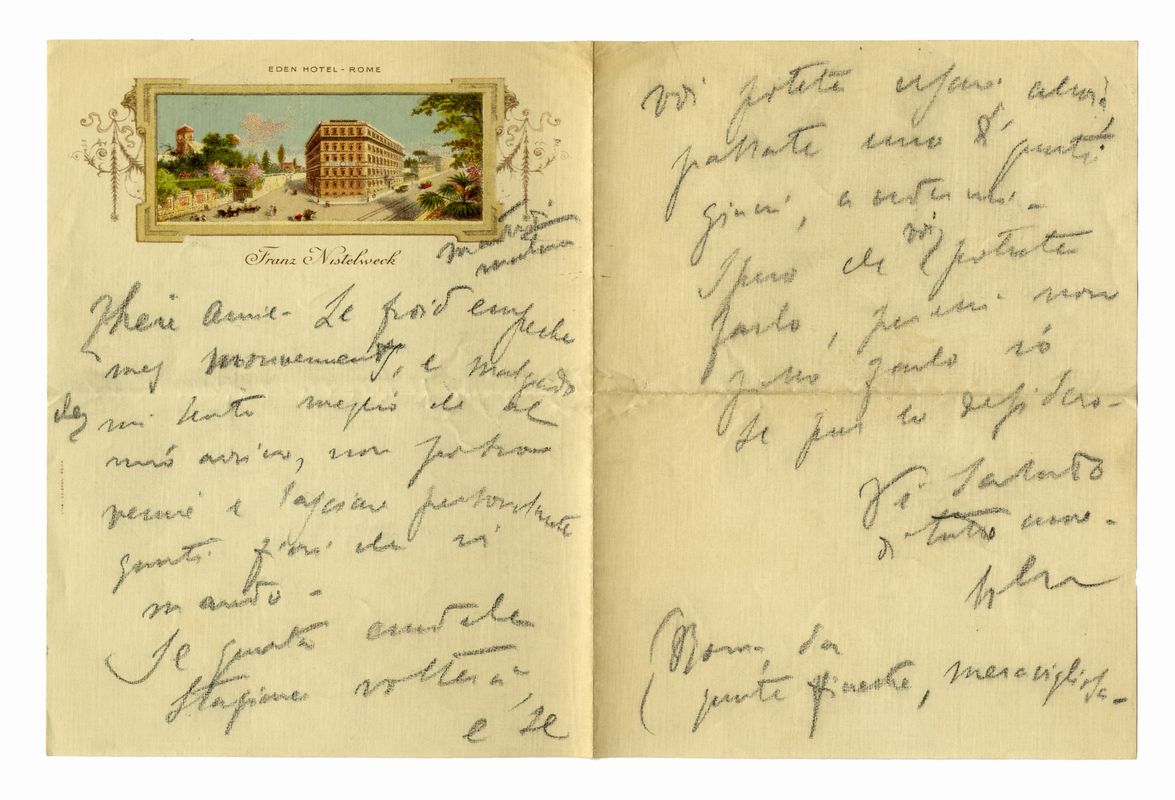 EDEN HOTEL - ROME
Franz Nistelweck
martedi
mattina
Chère Amie - Le froid empeche
mes mouvements, e malgrado
che mi sento meglio che al
mio arrivo, non potrò
venire e lasciare personalmente
questi fiori che vi
mando -
Se questa crudele
stagione volterà,
e se
voi potete
passate uno di questi
giorni, a vedermi -
Spero che voi potrete
farlo, perché non
posso farlo io
Se pur lo desidero -
Vi saluto
di tutto cuore -
(Roma, da
queste finestre, meravigliosa -